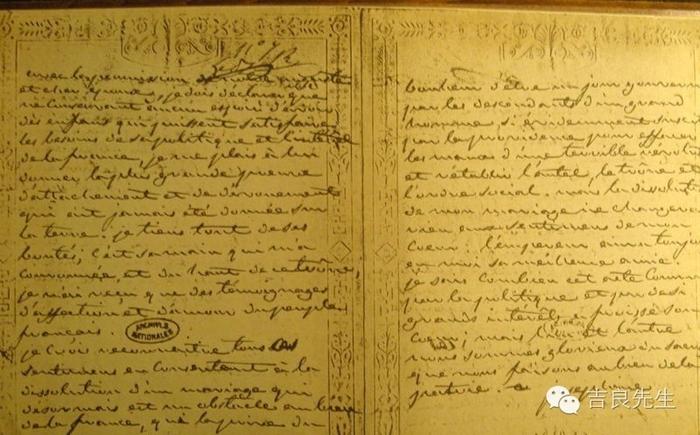 avec la permission de notre auguste
et cher époux, je dois déclarer que
ne conservant aucun espoir d'avoir
des enfans qui puissent satisfaire
les besoins de sa politique et l'intérêt
de la france, je me plais à lui
donner la plus grande preuve
d'attachement et de dévouement
qui ait jamais été donnée sur
la terre. je tiens tout de ses
bontés; c'est sa main qui m'a
couronnée et du haut de ce trône,
je n'ai reçu que des témoignages
d'affection et d'amour du peuple
français.
ARCHIVES
NATIONALES
je crois reconnoitre tous ces
sentimens en consentant à la
dissolution d'un mariage qui
désormais est un obstacle au bien
de la france, qui la prive du
bonheur d'être un jour gouvernée
par les descendants d'un grand
homme, si évidemment suscité
par la providence pour effacer
les maux d'une terrible révolution
et rétablir l'autel, le trône et
l'ordre social. mais la dissolution
de mon mariage ne changera
rien aux sentimens de mon
coeur: l'empereur aura toujours
en moi sa meilleure amie.
je sais combien cet acte commandé
par la politique et par de si
grands intérêts, a froissé son
coeur; mais l'un et l'autre
nous sommes glorieux du sacrifice
que nous faisons au bien de la
patrie.
Josephine
吉良先生